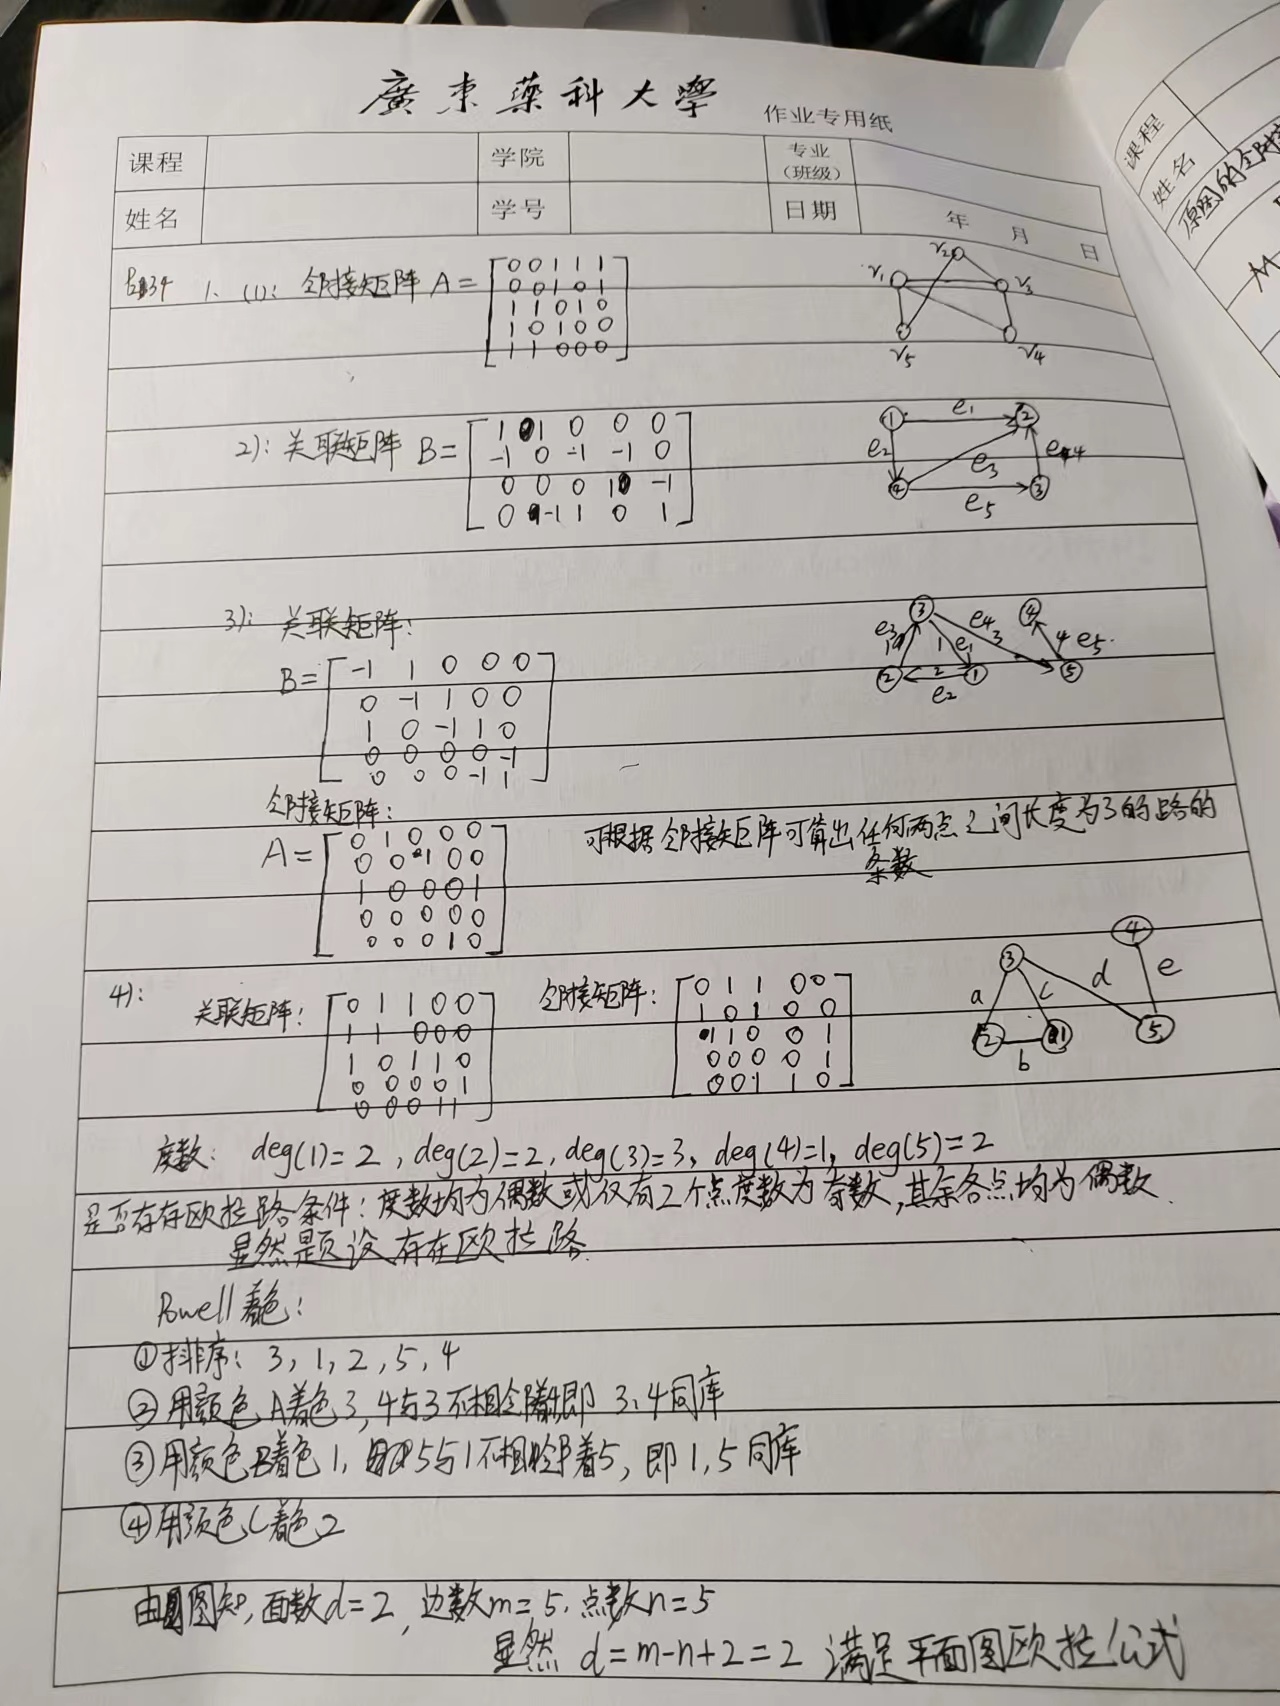 廣東藥科大學 作业专用纸
课程 学院 专业(班级)
姓名 学号 日期 年 月 日
课程
姓名
原图的邻接
M
P134 1. (1): 邻接矩阵 A=
0 0 1 1 1
0 0 1 0 1
1 1 0 1 0
1 0 1 0 0
1 1 0 0 0
v1 v2 v3 v5 v4
2): 关联矩阵 B=
1 1 0 0 0
-1 0 -1 -1 0
0 0 0 1 -1
0 -1 1 0 1
① e1 ② e2 e3 e4 ④ e5 ③
3): 关联矩阵:
B=
-1 1 0 0 0
0 -1 1 0 0
1 0 -1 1 0
0 0 0 0 -1
0 0 0 -1 1
③ ④ e3 1 1 e1 e4 3 4 e5 ② 2 ① ⑤ e2
邻接矩阵:
A=
0 1 0 0 0
0 0 1 0 0
1 0 0 0 1
0 0 0 0 0
0 0 0 1 0
可根据邻接矩阵可算出任何两点之间长度为3的路的
条数
4):
关联矩阵:
0 1 1 0 0
1 1 0 0 0
1 0 1 1 0
0 0 0 0 1
0 0 0 1 1
邻接矩阵:
0 1 1 0 0
1 0 1 0 0
1 1 0 0 1
0 0 0 0 1
0 0 1 1 0
③ ④ a c d e ② b 1 ⑤
度数: deg(1)=2, deg(2)=2, deg(3)=3, deg(4)=1, deg(5)=2
是否存在欧拉路条件: 度数均为偶数或仅有2个点度数为奇数,其余各点均为偶数.
显然题设存在欧拉路.
Powell着色:
①排序: 3, 1, 2, 5, 4
②用颜色A着色3, 4与3不相邻 即 3、4同库
③用颜色B着色1, 5与1不相邻着5, 即1,5同库
④用颜色C着色2
由图知, 面数d=2, 边数m=5, 点数n=5
显然 d=m-n+2=2 满足平面图欧拉公式